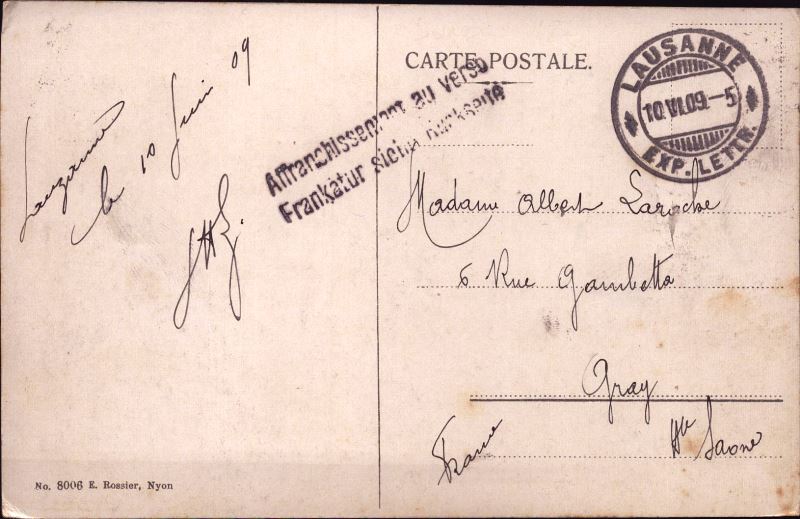 Lauzanne
le 10 Juin 09
CARTE POSTALE.
Affranchissement au verso
Frankatur siehe Rückseite
LAUSANNE
10.VI.09.-5
EXP. LETTR.
Madame Albert Laroche
6 Rue Gambetta
Gray
Hte Saone
France
No. 8006 E. Rossier, Nyon